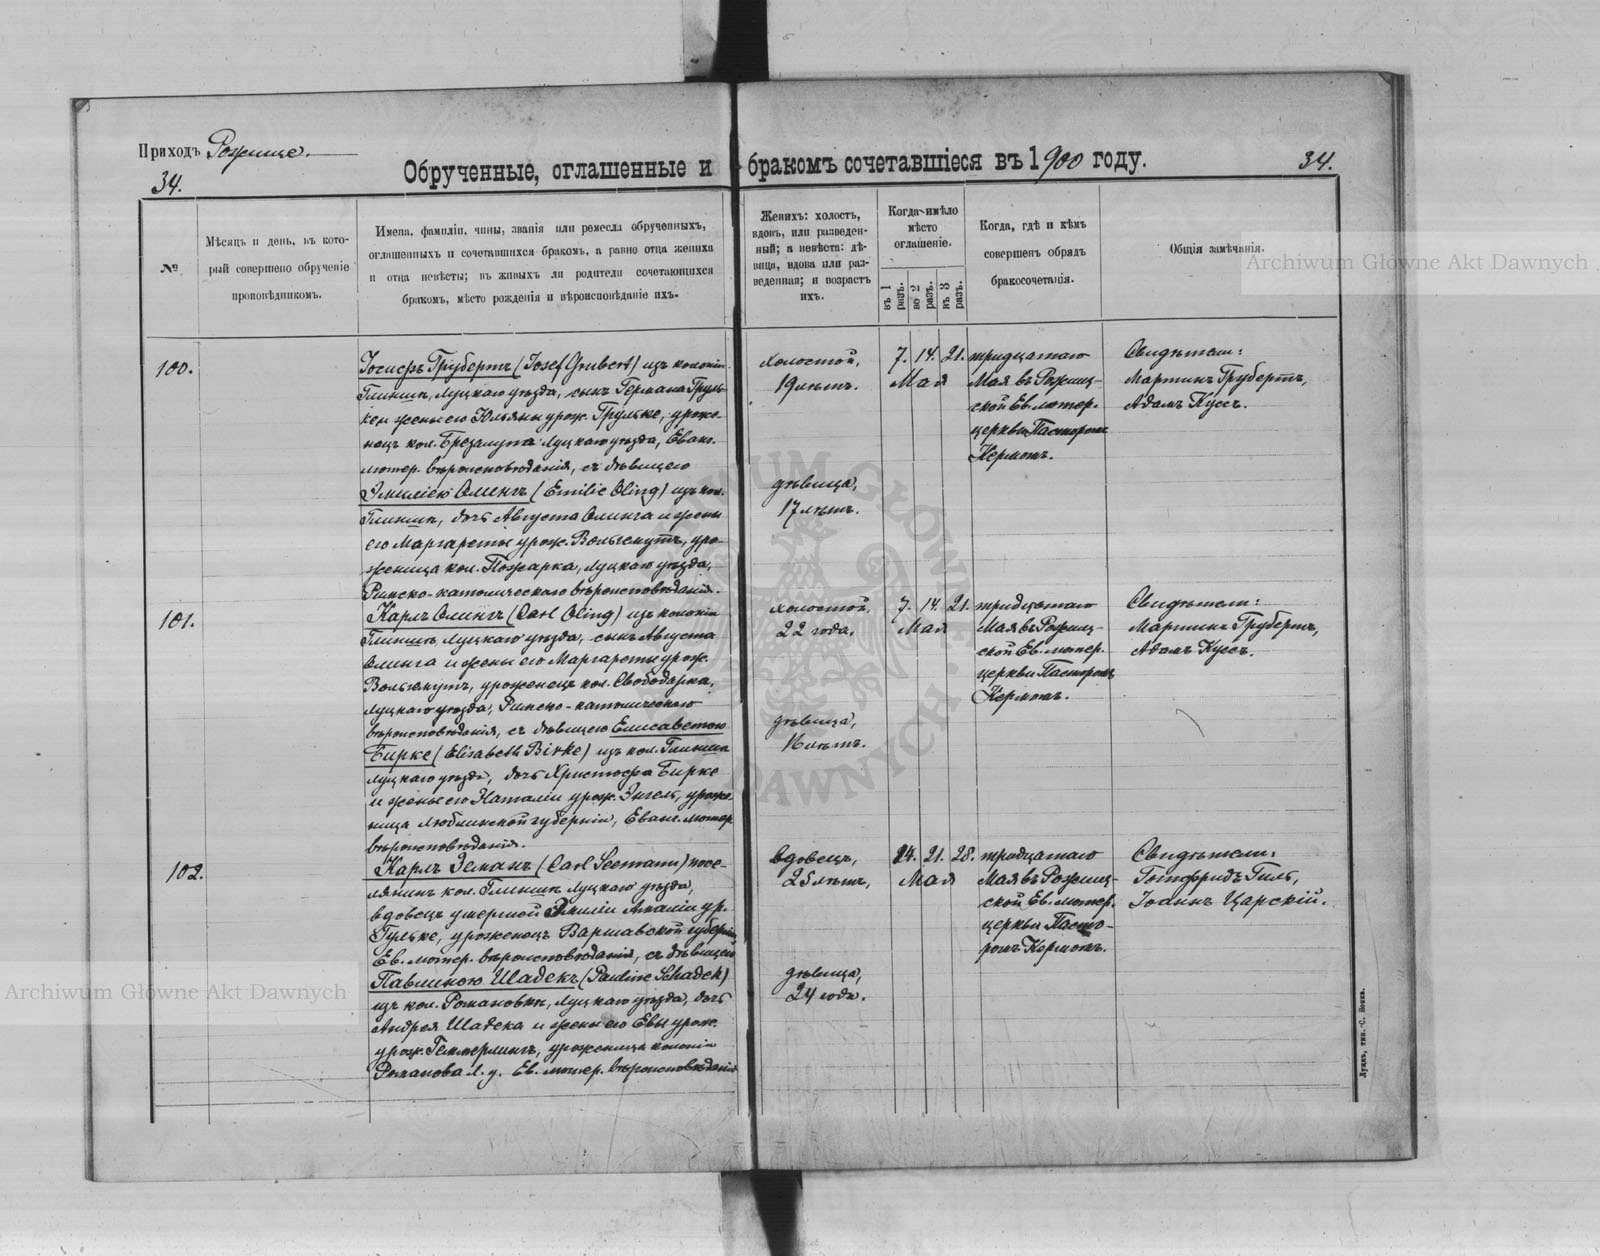 Приходъ Рожище.
34.
Обрученные, оглашенные и бракомъ сочетавшіеся въ 1900 году.
34.
№
Мѣсяцъ и день, въ кото-
рый совершено обрученіе
проповѣдникомъ.
Имена, фамиліи, чины, званія или ремесла обрученныхъ,
оглашенныхъ и сочетавшихся бракомъ, а равно отца жениха
и отца невѣсты; въ живыхъ ли родители сочетающихся
бракомъ, мѣсто рожденія и вѣроисповѣданіе ихъ.
Женихъ: холостъ,
вдовъ, или разведен-
ный; а невѣста: дѣ-
вица, вдова или раз-
веденная; и возрастъ
ихъ.
Когда имѣло
мѣсто
оглашеніе.
въ 1 разъ.
во 2 разъ.
въ 3 разъ.
Когда, гдѣ и кѣмъ
совершенъ обрядъ
бракосочетанія.
Общія замѣчанія.
Archiwum Główne Akt Dawnych
100.
Іосифъ Грубертъ (Josef Grubert) изъ колоніи
Глинищ, Луцкаго уѣзда, сынъ Германа Груль-
жены его Юльяны урож. Грульке, уроже-
нецъ кол. Брезалупа Луцкаго уѣзда, Еванг.
лютер. вѣроисповѣданія, съ дѣвицею
Эмиліею Олингъ (Emilie Oling) изъ кол.
Глинищ, дочь Августа Олинга и жены
его Маргареты урож. Вольгемутъ, уро-
женица кол. Пожарка, Луцкаго уѣзда,
Римско-католическаго вѣроисповѣданія.
холостой,
19 лѣтъ.
дѣвица,
17 лѣтъ.
7. 14. 21.
Мая
тридцатаго
Мая въ Рожищ-
ской Ев. лютер.
церкви Пасторомъ
Кермомъ.
Свидѣтели:
Мартинъ Грубертъ,
Адамъ Куссъ.
101.
Карлъ Олингъ (Carl Oling) изъ колоніи
Глинищ Луцкаго уѣзда, сынъ Августа
Олинга и жены его Маргареты урож.
Вольгемутъ, уроженецъ кол. Свободарка,
Луцкаго уѣзда, Римско-католическаго
вѣроисповѣданія, съ дѣвицею Елисаветою
Бирке (Elisabeth Birke) изъ кол. Глинищ
Луцкаго уѣзда, дочь Христофа Бирке
и жены его Наталіи урож. Энгель, уроже-
ница Люблинской губерніи, Еванг. лютер.
вѣроисповѣданія.
холостой,
22 года,
дѣвица,
16 лѣтъ.
7. 14. 21.
Мая
тридцатаго
Мая въ Рожищ-
ской Ев. лютер.
церкви Пасторомъ
Кермомъ.
Свидѣтели:
Мартинъ Грубертъ,
Адамъ Куссъ.
102.
Карлъ Земанъ (Carl Seemann) посе-
лянинъ кол. Глинищ Луцкаго уѣзда,
вдовецъ умершей Эмиліи Амаліи ур.
Гульке, уроженецъ Варшавской губерніи
Ев. лютер. вѣроисповѣданія, съ дѣвицею
Павлиною Шадекъ (Pauline Schadek)
изъ кол. Романовки, Луцкаго уѣзда, дочь
Андрея Шадека и жены его Евы урож.
урож. Геммерлингъ, уроженица колоніи
Романова Л. у. Ев. лютер. вѣроисповѣданія
вдовецъ,
25 лѣтъ,
дѣвица,
24 года.
14. 21. 28.
Мая
тридцатаго
Мая въ Рожищ-
ской Ев. лютер.
церкви Пасто-
ромъ Кермомъ.
Свидѣтели:
Готфридъ Гиль,
Іоаннъ Царскій.
Archiwum Główne Akt Dawnych
Луцкъ, тип. С. Бонка.